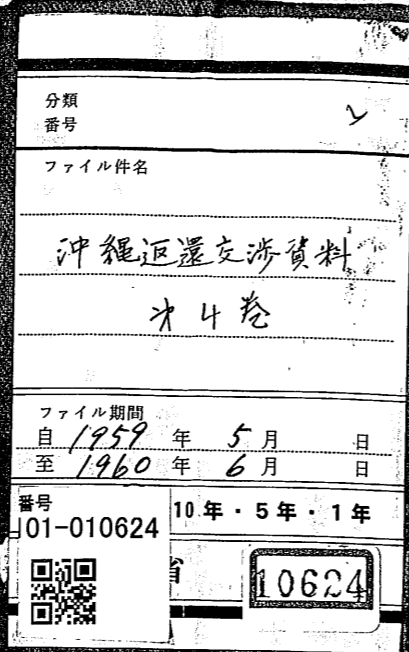 分類
番号
ファイル件名
沖縄返還交渉資料
第4巻
ファイル期間
自 1959 年 5 月 日
至 1960 年 6 月 日
番号
J01-010624
10年・5年・1年
省
10624